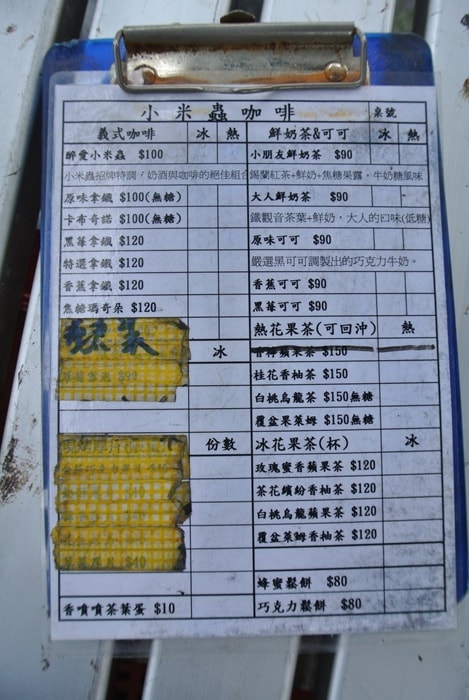 小米蟲咖啡 桌號
義式咖啡 冰 熱
醉愛小米蟲 $100
小米蟲招牌特調，奶酒與咖啡的絕佳組合
原味拿鐵 $100(無糖)
卡布奇諾 $100(無糖)
黑莓拿鐵 $120
特選拿鐵 $120
香蕉拿鐵 $120
焦糖瑪奇朵 $120
冰
份數
香噴噴茶葉蛋 $10
鮮奶茶&可可 冰 熱
小朋友鮮奶茶 $90
錫蘭紅茶+鮮奶+焦糖果露，牛奶糖風味
大人鮮奶茶 $90
鐵觀音茶葉+鮮奶，大人的口味(低糖)
原味可可 $90
嚴選黑可可調製出的巧克力牛奶。
香蕉可可 $90
黑莓可可 $90
熱花果茶(可回沖) 熱
香檸蘋果茶 $150
桂花香柚茶 $150
白桃烏龍茶 $150無糖
覆盆果萊姆 $150無糖
冰花果茶(杯) 冰
玫瑰蜜香蘋果茶 $120
茶花繽紛香柚茶 $120
白桃烏龍蘋果茶 $120
覆盆萊姆香柚茶 $120
蜂蜜鬆餅 $80
巧克力鬆餅 $80